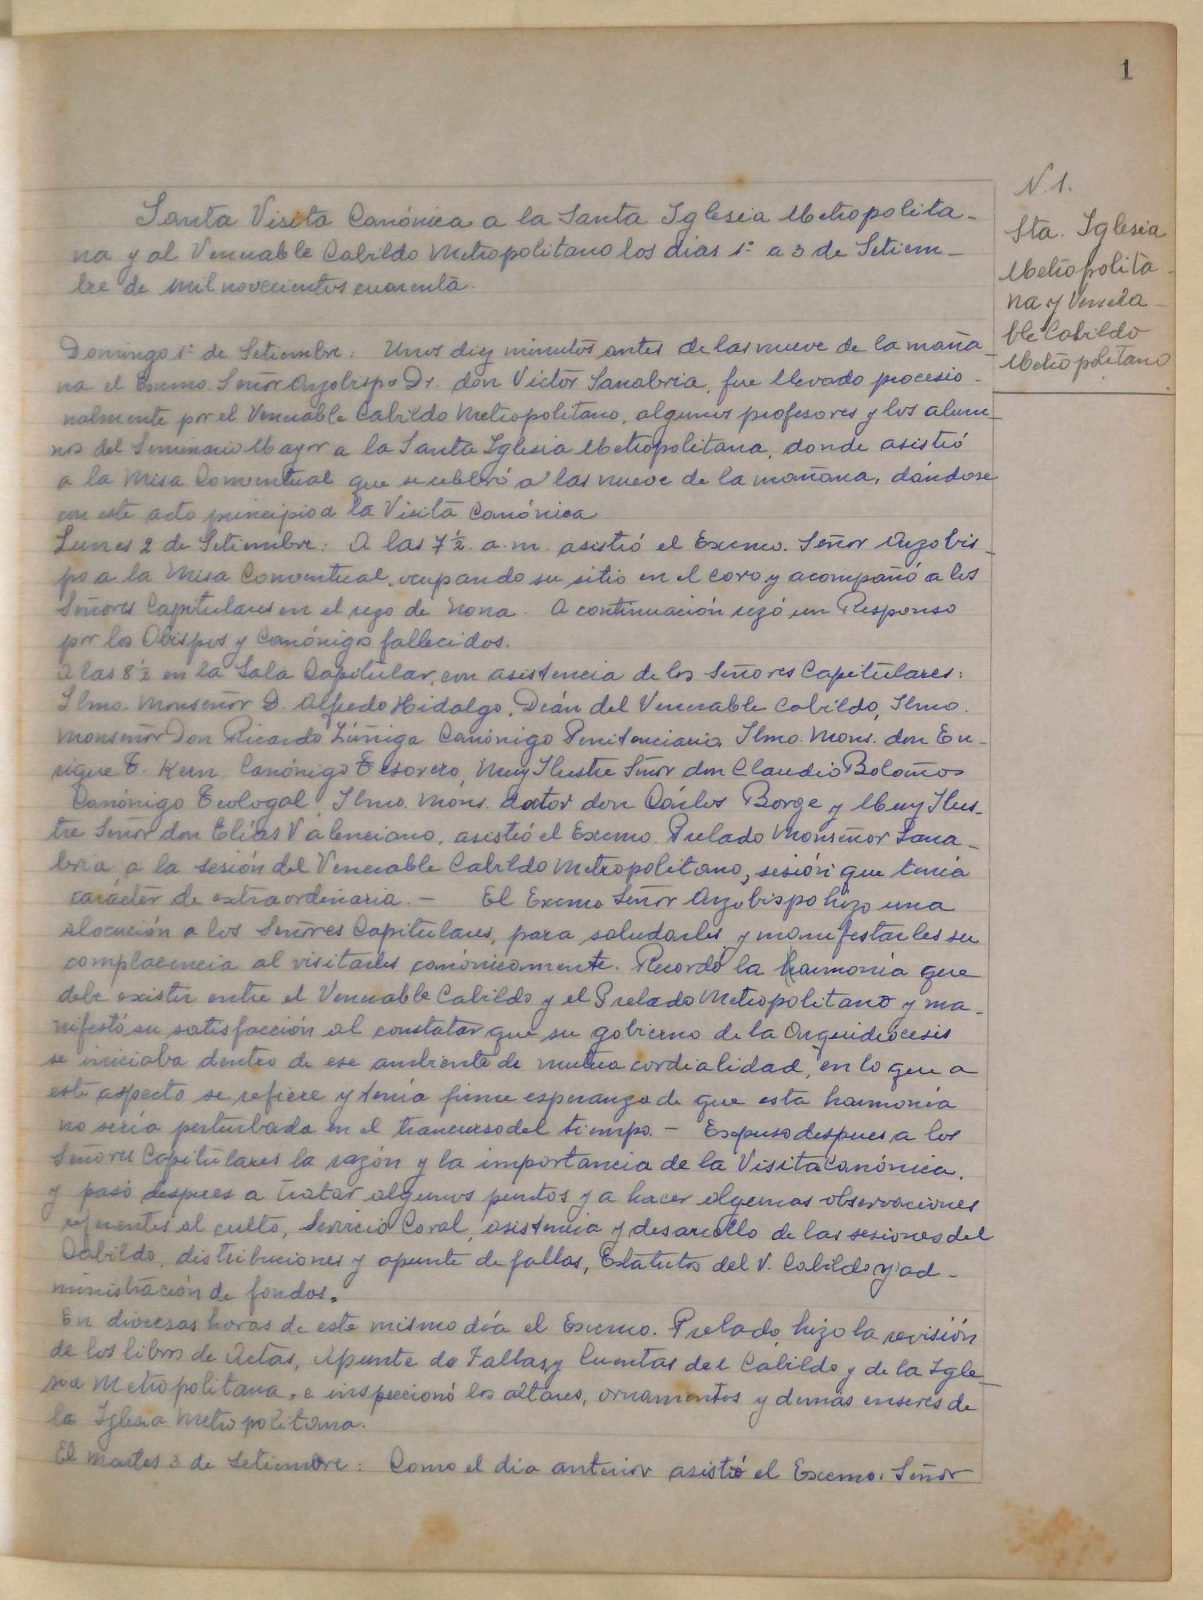 1
N 1.
Sta. Iglesia
Metropolita-
na y Venera-
ble Cabildo
Metropolitano
Santa Visita Canónica a la Santa Iglesia Metropolita-
na y al Venerable Cabildo Metropolitano los días 1º a 3 de Setiem-
bre de mil novecientos cuarenta.
Domingo 1º de Setiembre: Unos diez minutos antes de las nueve de la maña-
na el Excmo. Señor Arzobispo Dr. don Víctor Sanabria, fue llevado procesio-
nalmente por el Venerable Cabildo Metropolitano, algunos profesores y los alum-
nos del Seminario Mayor a la Santa Iglesia Metropolitana, donde asistió
a la Misa Conventual que se celebró a las nueve de la mañana, dándose
con este acto principio a la Visita Canónica
Lunes 2 de Setiembre: A las 7½ a.m. asistió el Excmo. Señor Arzobis-
po a la Misa Conventual, ocupando su sitio en el coro y acompañó a los
Señores Capitulares en el rezo de Nona. A continuación rezó un Responso
por los Obispos y Canónigos fallecidos.
A las 8½ en la Sala Capitular, con asistencia de los Señores Capitulares:
Ilmo. Monseñor D. Alfredo Hidalgo, Deán del Venerable Cabildo, Ilmo.
Monseñor Don Ricardo Zúñiga Canónigo Penitenciario, Ilmo. Mons. don En-
rique T. Kern, Canónigo Tesorero, Muy Ilustre Señor don Claudio Bolaños
Canónigo Teologal, Ilmo. Mons. Doctor don Cárlos Borge y Muy Ilus-
tre Señor don Elías Valenciano, asistió el Excmo. Prelado Monseñor Sana-
bria a la sesión del Venerable Cabildo Metropolitano, sesión que tenía
carácter de extraordinaria. - El Excmo Señor Arzobispo hizo una
alocución a los Señores Capitulares, para saludarles y manifestarles su
complacencia al visitarles canónicamente. Recordó la harmonía que
debe existir entre el Venerable Cabildo y el Prelado Metropolitano y ma-
nifestó su satisfacción al constatar que su gobierno de la Arquidiócesis
se iniciaba dentro de ese ambiente de mutua cordialidad, en lo que a
este aspecto se refiere y tenía firme esperanza de que esta harmonía
no sería perturbada en el trancurso del tiempo. - Expuso despues a los
Señores Capitulares la razón y la importancia de la Visita Canónica,
y pasó despues a tratar algunos puntos y a hacer algunas observaciones
referentes al culto, Servicio Coral, asistencia y desarrollo de las sesiones del
Cabildo, distribuciones y apunte de fallas, Estatutos del V. Cabildo y ad-
ministración de fondos.
En diversas horas de este mismo día el Excmo. Prelado, hizo la revisión
de los libros de Actas, Apunte de Fallas y Cuentas del Cabildo y de la Igle-
sia Metropolitana, e inspeccionó los altares, ornamentos y demás enseres de
la Iglesia Metropolitana.
El Martes 3 de Setiembre: Como el día anterior asistió el Excmo. Señor